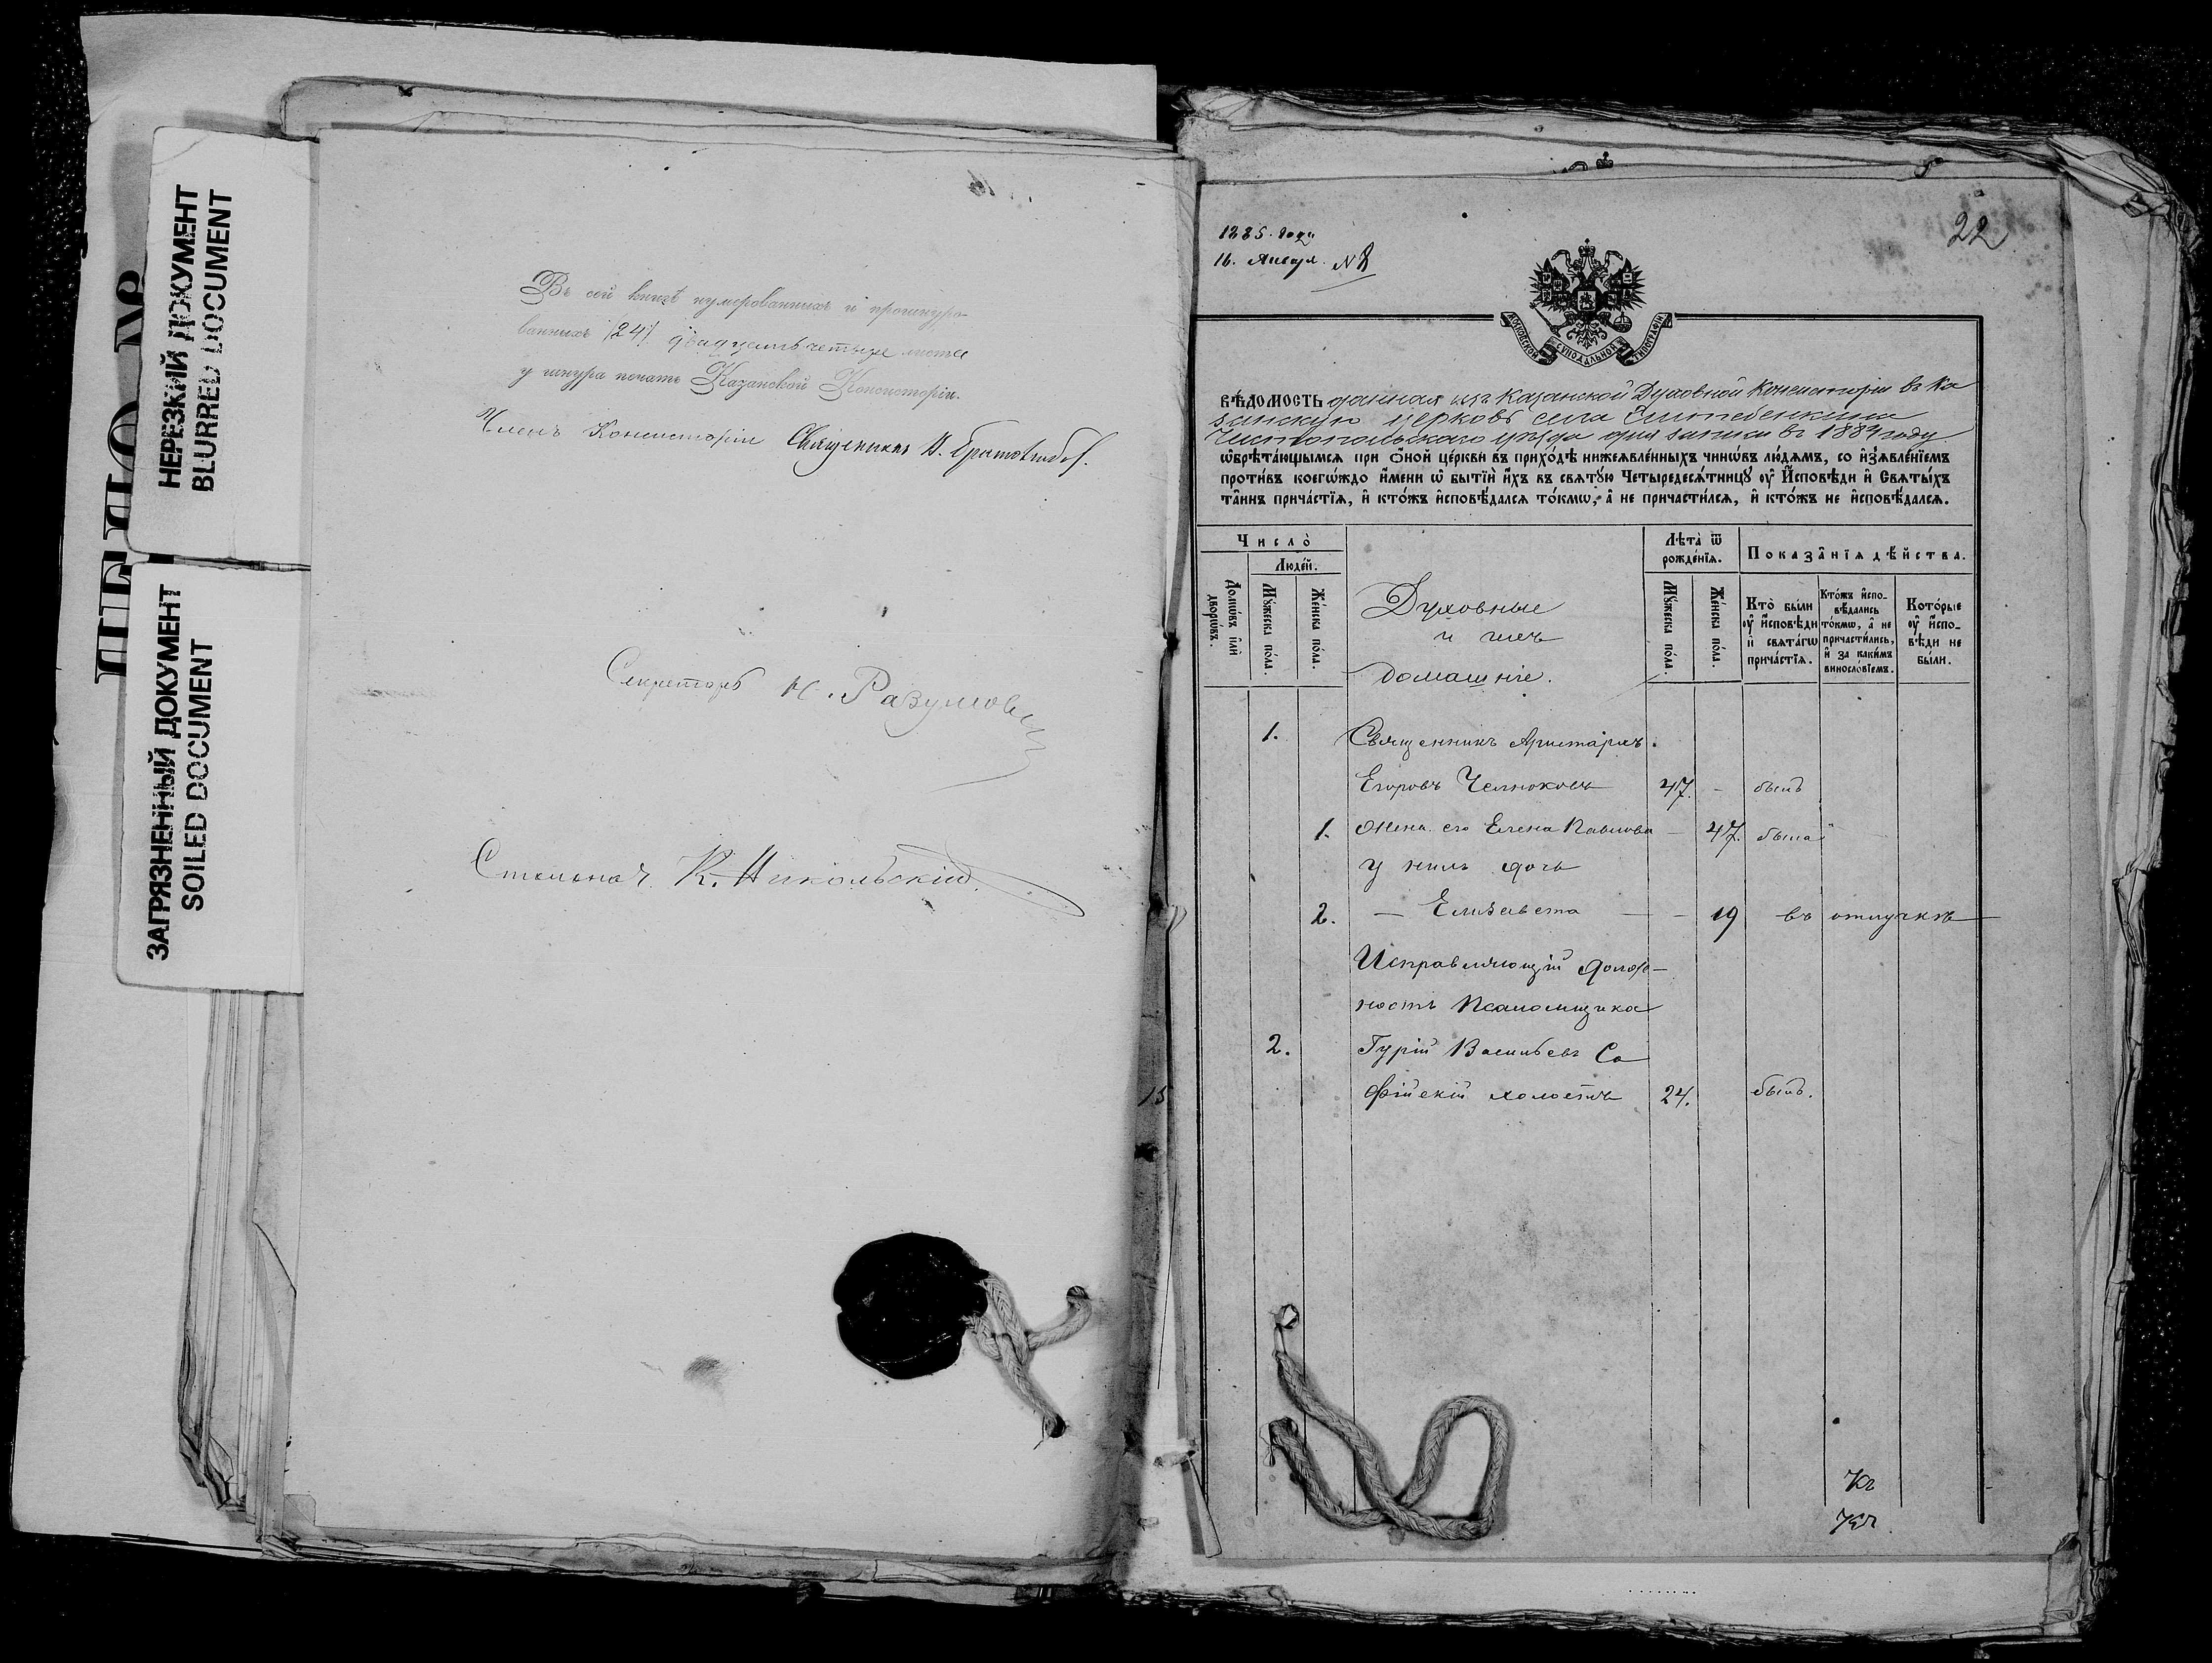 НЕРЕЗКИЙ ДОКУМЕНТ
BLURRED DOCUMENT
ЗАГРЯЗНЕННЫЙ ДОКУМЕНТ
SOILED DOCUMENT
ДЕЛО №
Въ сей книгѣ нумерованныхъ и прошнуро-
ванныхъ /24/ двадцать четыре листа
у шнура печать Казанской Консисторіи.
Членъ Консисторіи Священникъ
Секретарь Н. Разумовъ
Столонач. К. Никольскій
15
1885. года
16. Января. N 8
22
МОСКОВСКОЙ СѴНОДАЛЬНОЙ ТИПОГРАФІИ
ВѢДОМОСТЬ данная изъ Казанской Духовной Консисторіи въ Ка
занскую церковь села
Чистопольскаго уѣзда для записи въ 1884 году.
ѡ҆брѣта́ющымсѧ при ѻ҆́ной це́ркви въ прихо́дѣ нижеѧвле́нныхъ чинѡ́въ лю́дѧмъ, со и҆з̾ѧвле́нїемъ
проти́въ коегѡ́ждо и҆́мени ѡ҆ бытїѝ и҆́хъ въ свѧту́ю Четыредесѧ́тницу ᲂу҆ И҆́сповѣди и҆ Свѧты́хъ
та̑инъ прича́стїѧ, и҆ кто́жъ и҆сповѣ́дался то́кмѡ, а҆ не причасти́лсѧ, и҆ кто́жъ не и҆сповѣ́далсѧ.
Число̀
Люде́й.
Домѡ́въ и҆лѝ дворѡ́въ.
Му́жеска по́ла.
Же́нска по́ла.
Духовные
и ихъ
домашніе.
Лѣта̀ ѿ рожде́нїѧ.
Му́жеска по́ла.
Же́нска по́ла.
Показа̑нїѧ дѣ́йства.
Кто̀ бы́ли ᲂу҆ и҆́сповѣди и҆ свѧта́гѡ прича́стїѧ.
Кто́жъ и҆спо-
вѣ́дались
то́кмѡ, а҆ не
причасти́лись,
и҆ за каки́мъ
винослов́їемъ.
Кото́рые ᲂу҆ и҆́спо-
вѣди не бы́ли.
1. Священникъ Аристархъ
Егоровъ Челноковъ 47. - былъ
1. Жена его Елена Павлова - 47. была
у нихъ дочь
2. - Елизавета - - 19 въ отлучкѣ
Исправляющій долж-
ность Псаломщика
2. Гурій Васильевъ Со
фійскій холостъ 24. былъ.